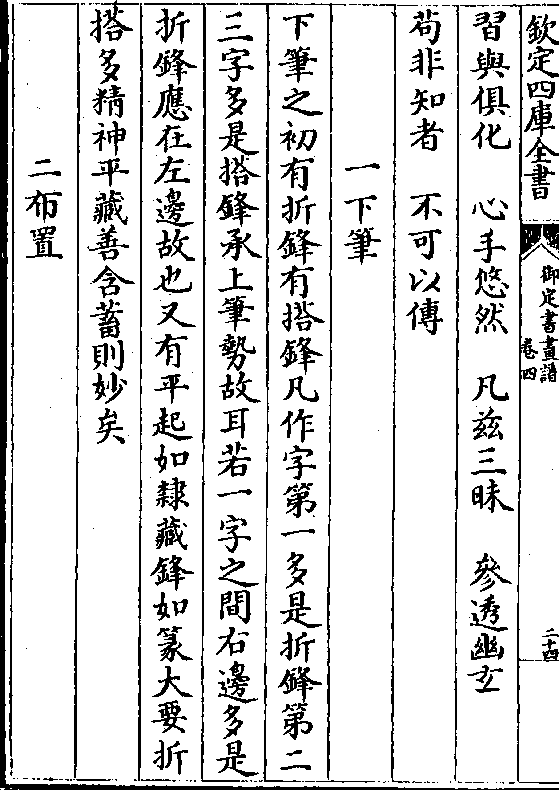 欽定四庫全書
御定書畫譜
卷四
二十四
習與俱化 心手悠然 凡兹三昧 參透幽玄
茍非知者 不可以傳
一下筆
下筆之初有折鋒有搭鋒凡作字第一多是折鋒第二
三字多是搭鋒承上筆勢故耳若一字之間右邊多是
折鋒應在左邊故也又有平起如隸藏鋒如篆大要折
搭多精神平藏善含蓄則妙矣
二布置